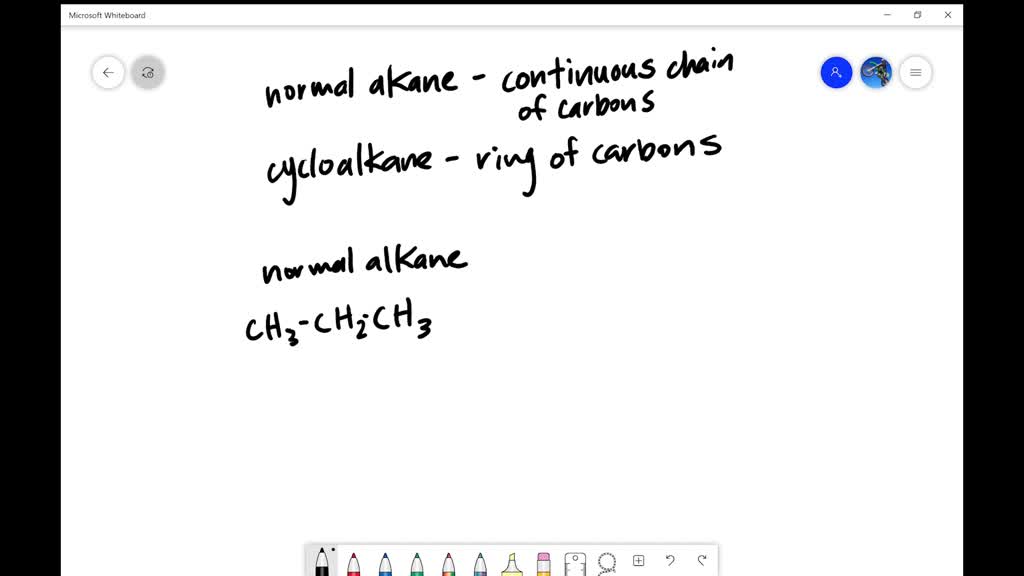 Microsoft Whiteboard
normal akane - continuous chain
of carbons
cycloalkane - ring of carbons
normal alkane
CH3-CH2-CH3